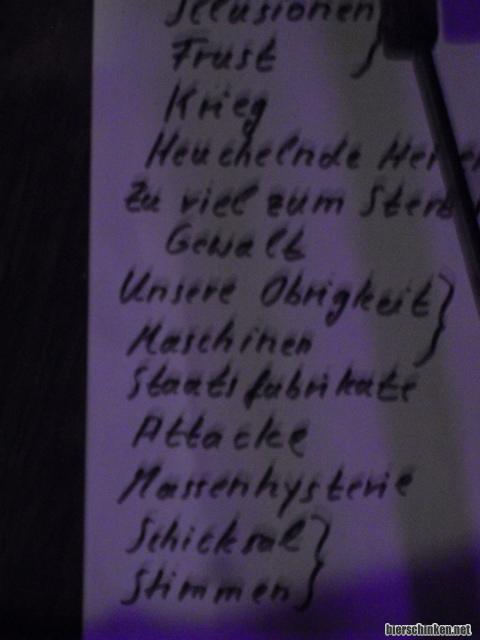 Illusionen
Frust
Krieg
Heuchelnde
Zu viel zum
Gewalt
Unsere Obrigkeit
Maschinen
Staatsfabrikate
Attacke
Massenhysterie
Schicksal
Stimmen
bierschinken.net